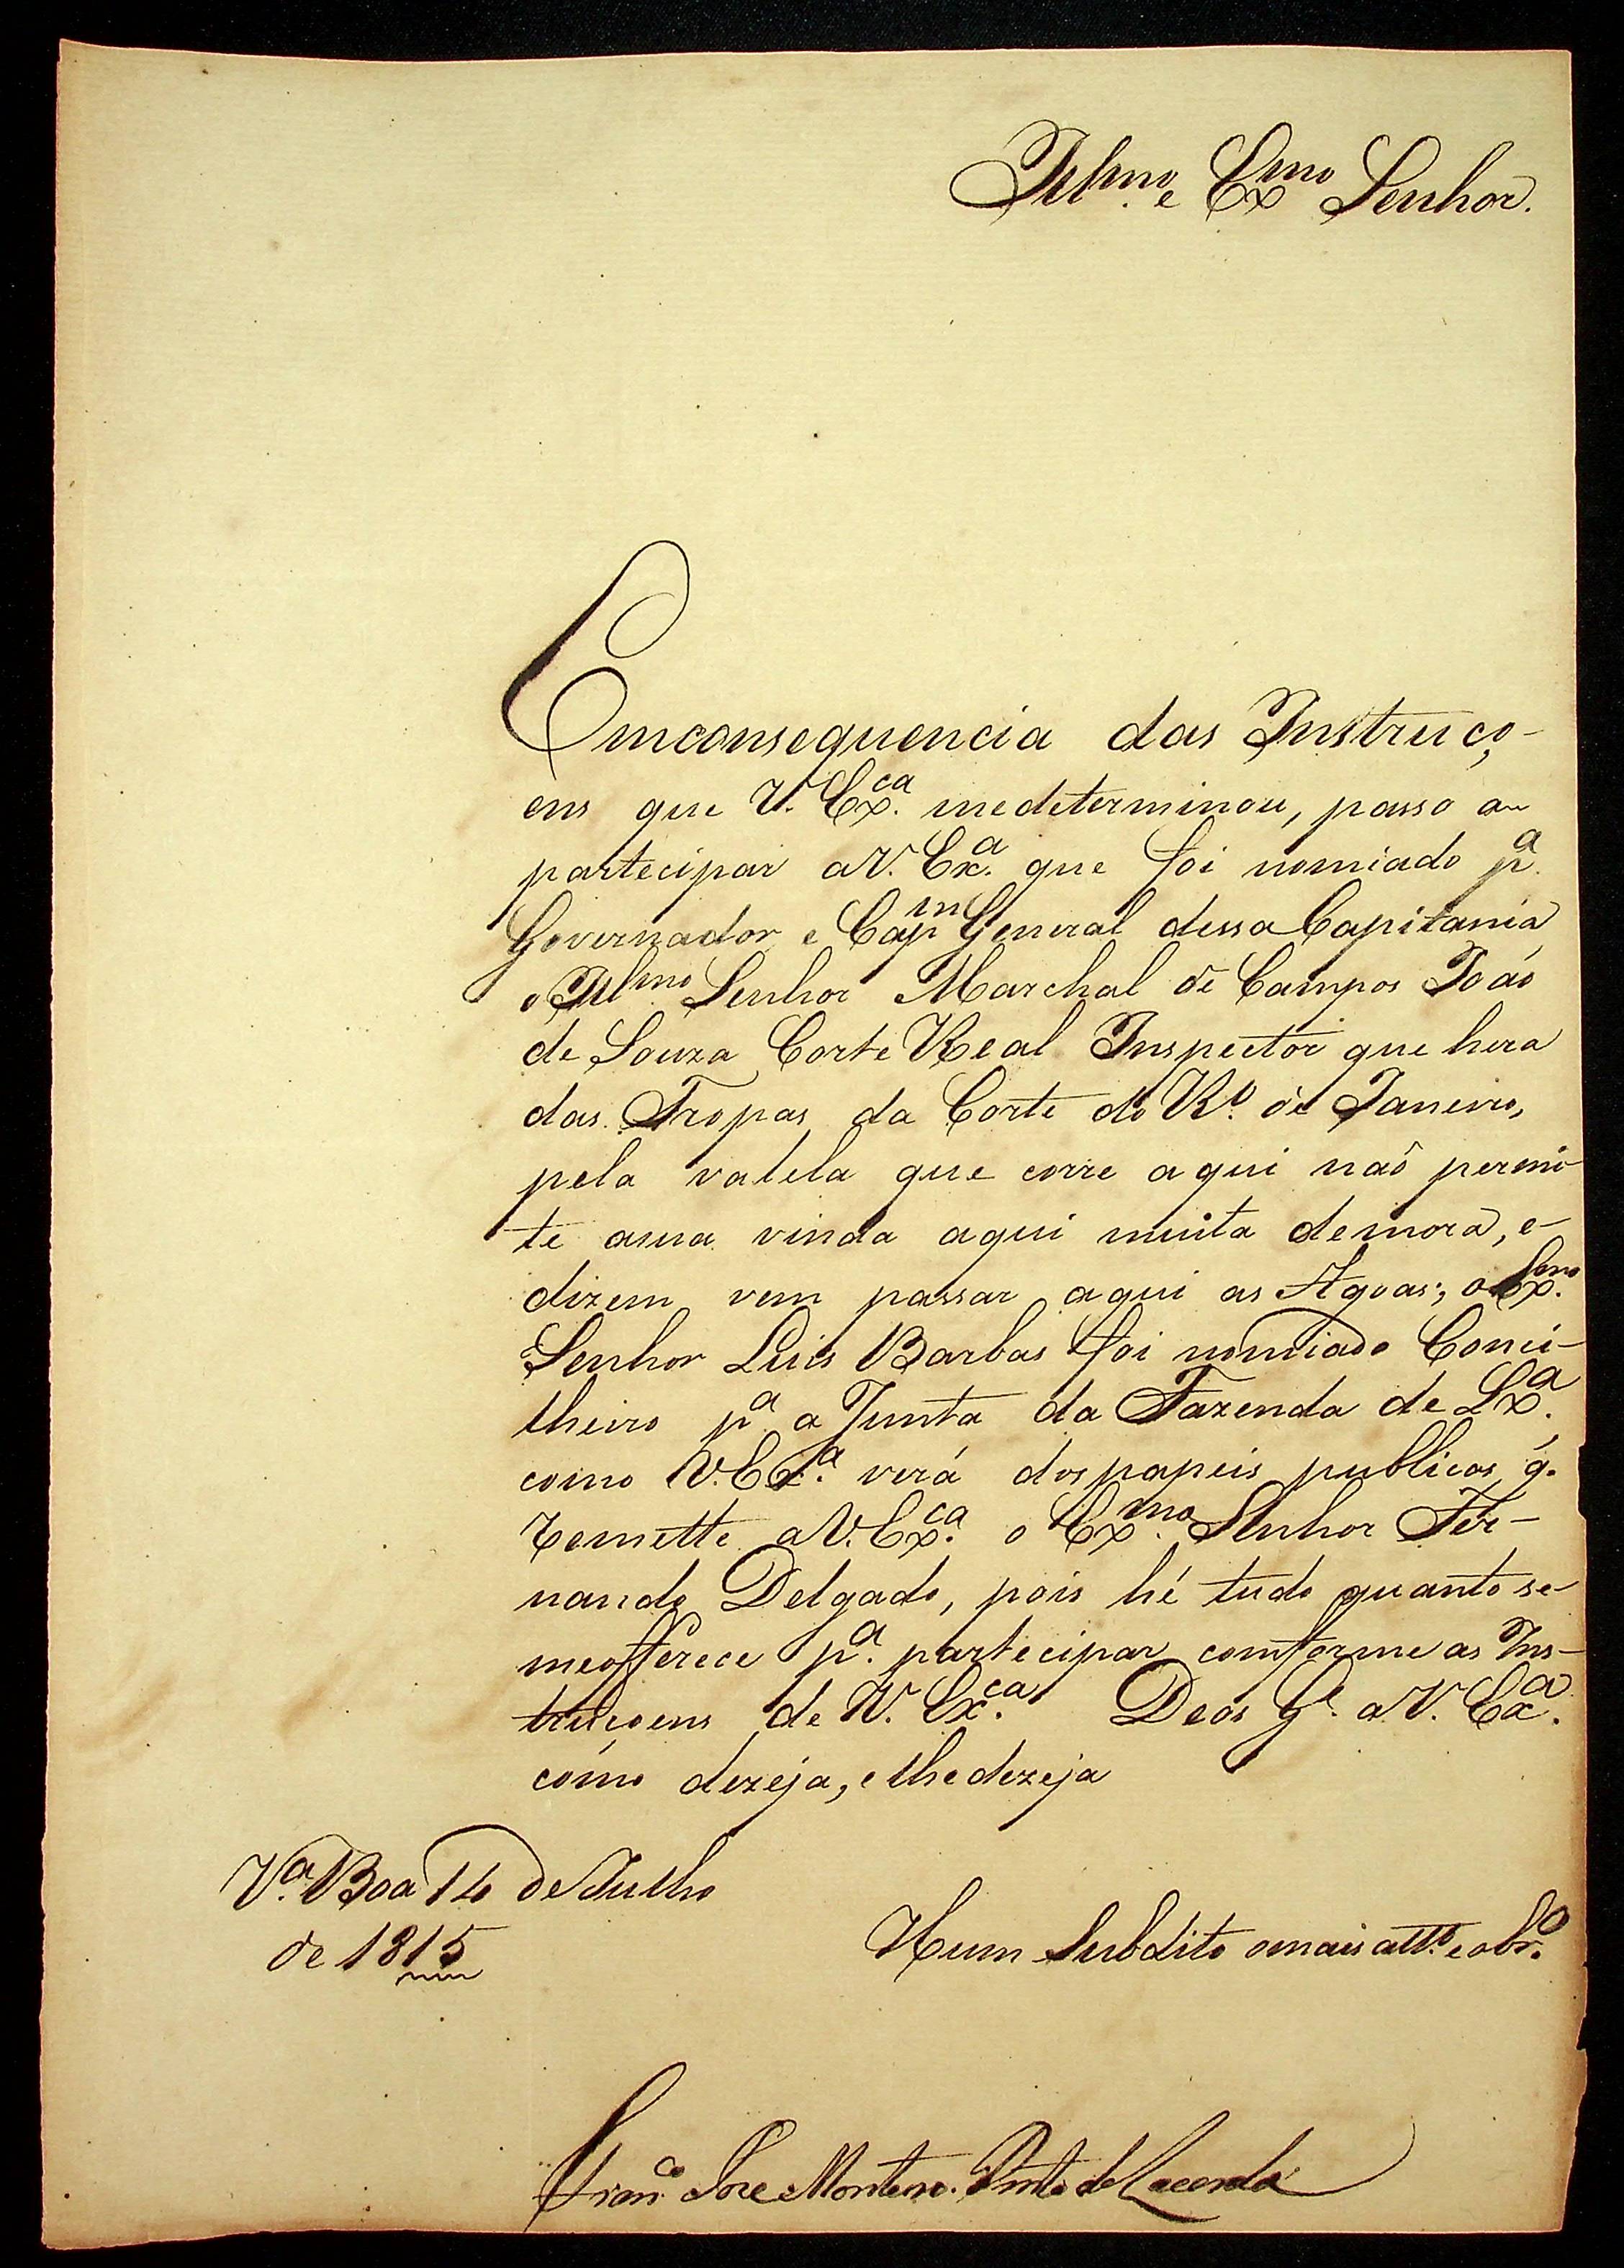 Illmo. e Exmo Senhor.
Emconsequencia das Instruço-
ens que V. Exca. medeterminou, passo a
partecipar aV. Exa. que foi nomiado pa.
Governador e Capm General dessa Capitania
o Illmo Senhor Marchal de Campos João
de Souza Corte Real Inspector que hera
das Tropas da Corte do Ro. de Janeiro,
pela valela que corre aqui naõ permi-
te asua vinda aqui muita demora, e
dizem vem passar aqui as Agoas; o Exmo.
Senhor Luis Barbas foi nomiado Conci-
lheiro pa. a Junta da Fazenda de Lxa.
como V. Exa. verá dos papeis publicos q.
remette aV. Exca. o Exmo. Senhor Fer-
nando Delgado, pois hé tudo quanto se
meofferece pa. partecipar comforme as Ins-
truçoens de V. Exca. Deos Ge. aV. Exa.
como dezeja, elhedezeja
Va. Boa 14 de Julho
de 1815
Hum Subdito omais atto. e obro.
Franco Joze Monteiro Pinto de Lacerda